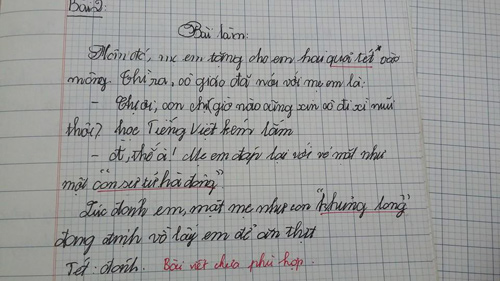 Bài 2:
Bài làm:
Hôm đó, mẹ em tặng cho em hai quả "tét" vào
mông. Thì ra, cô giáo đã nói với mẹ em là:
- Chị ơi, con chị giờ nào cũng xin cô đi xì mũi
thôi? học Tiếng Việt kém lắm
- Ừ, thế à! Mẹ em đáp lại với vẻ mặt như
một "con sư tử hà đông"
Lúc đánh em, mặt mẹ như con "khủng long"
đang định vồ lấy em để ăn thịt
Tét: đánh. Bài viết chưa phù hợp.